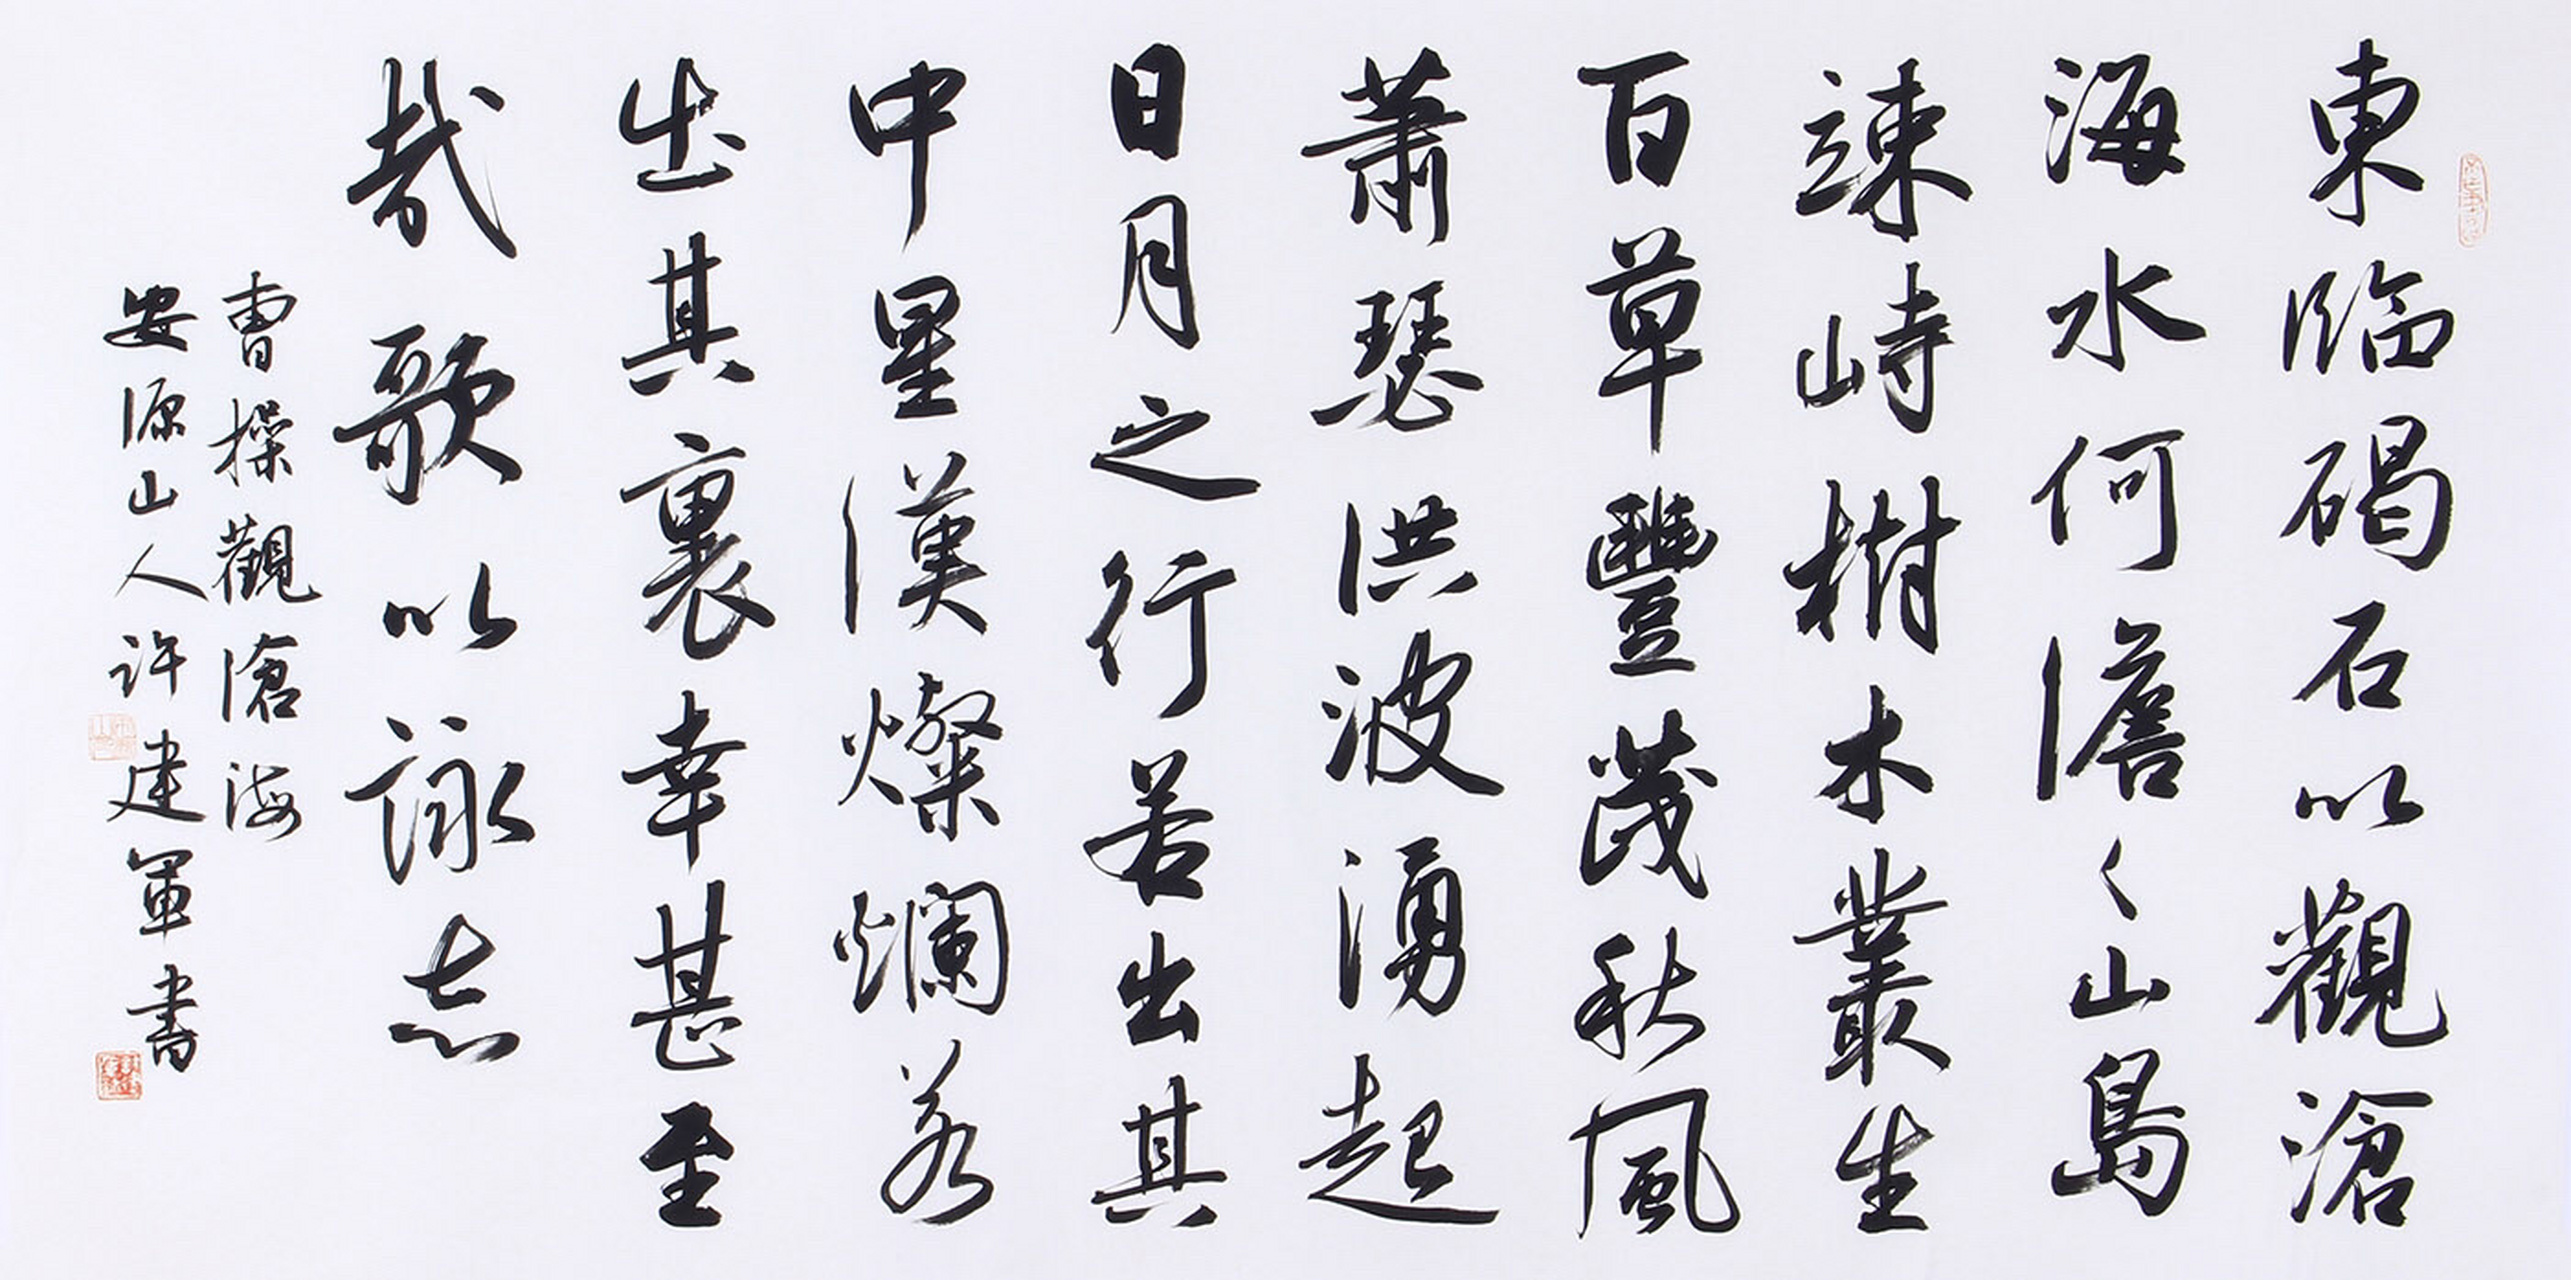 東臨碣石以觀滄
海水何澹々山島
竦峙樹木叢生
百草豐茂秋風
蕭瑟洪波湧起
日月之行若出其
中星漢燦爛若
出其裏幸甚至
哉歌以詠志
曹操觀滄海
安源山人許建軍書